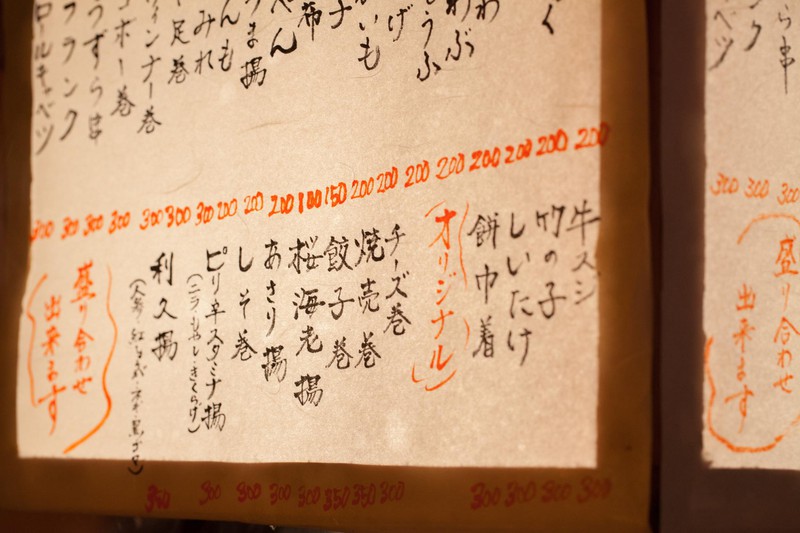 く
わ
わぶ
うふ
げ
ナ
いも
布
ぺん
ま揚
んも
みれ
足巻
ィンナー巻
ゴボー巻
うずら串
フランク
ロールキャベツ
200 200 200 200 200 200 200 200 150 100 200 200 200 300 300 300 300 300 300 300
牛スジ
竹の子
しいたけ
餅巾着
(オリジナル)
チーズ巻
焼売巻
餃子巻
桜海老揚
あさり揚
しそ巻
ピリ辛スタミナ揚
(ニラもやしきくらげ)
利久揚
盛り合わせ
出来ます
300 300 300 300
300 350 350 300 300 300 300 350
ら串
ンク
ベツ
300 300 300
盛り合わせ
出来ます